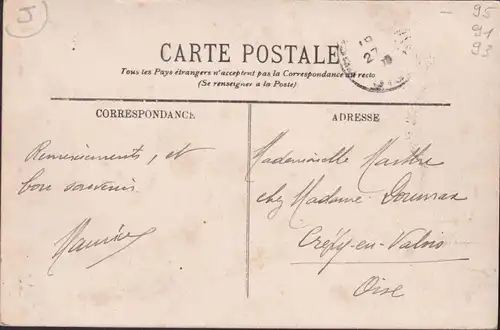 J
95
91
93
CARTE POSTALE
Tous les Pays étrangers n'acceptent pas la Correspondance au recto
(Se renseigner a la Poste)
CORRESPONDANCE
Remerciements, et
bon souvenir
Maurice
ADRESSE
Mademoiselle Marthe
chez Madame
Crépy-en-Valois
Oise